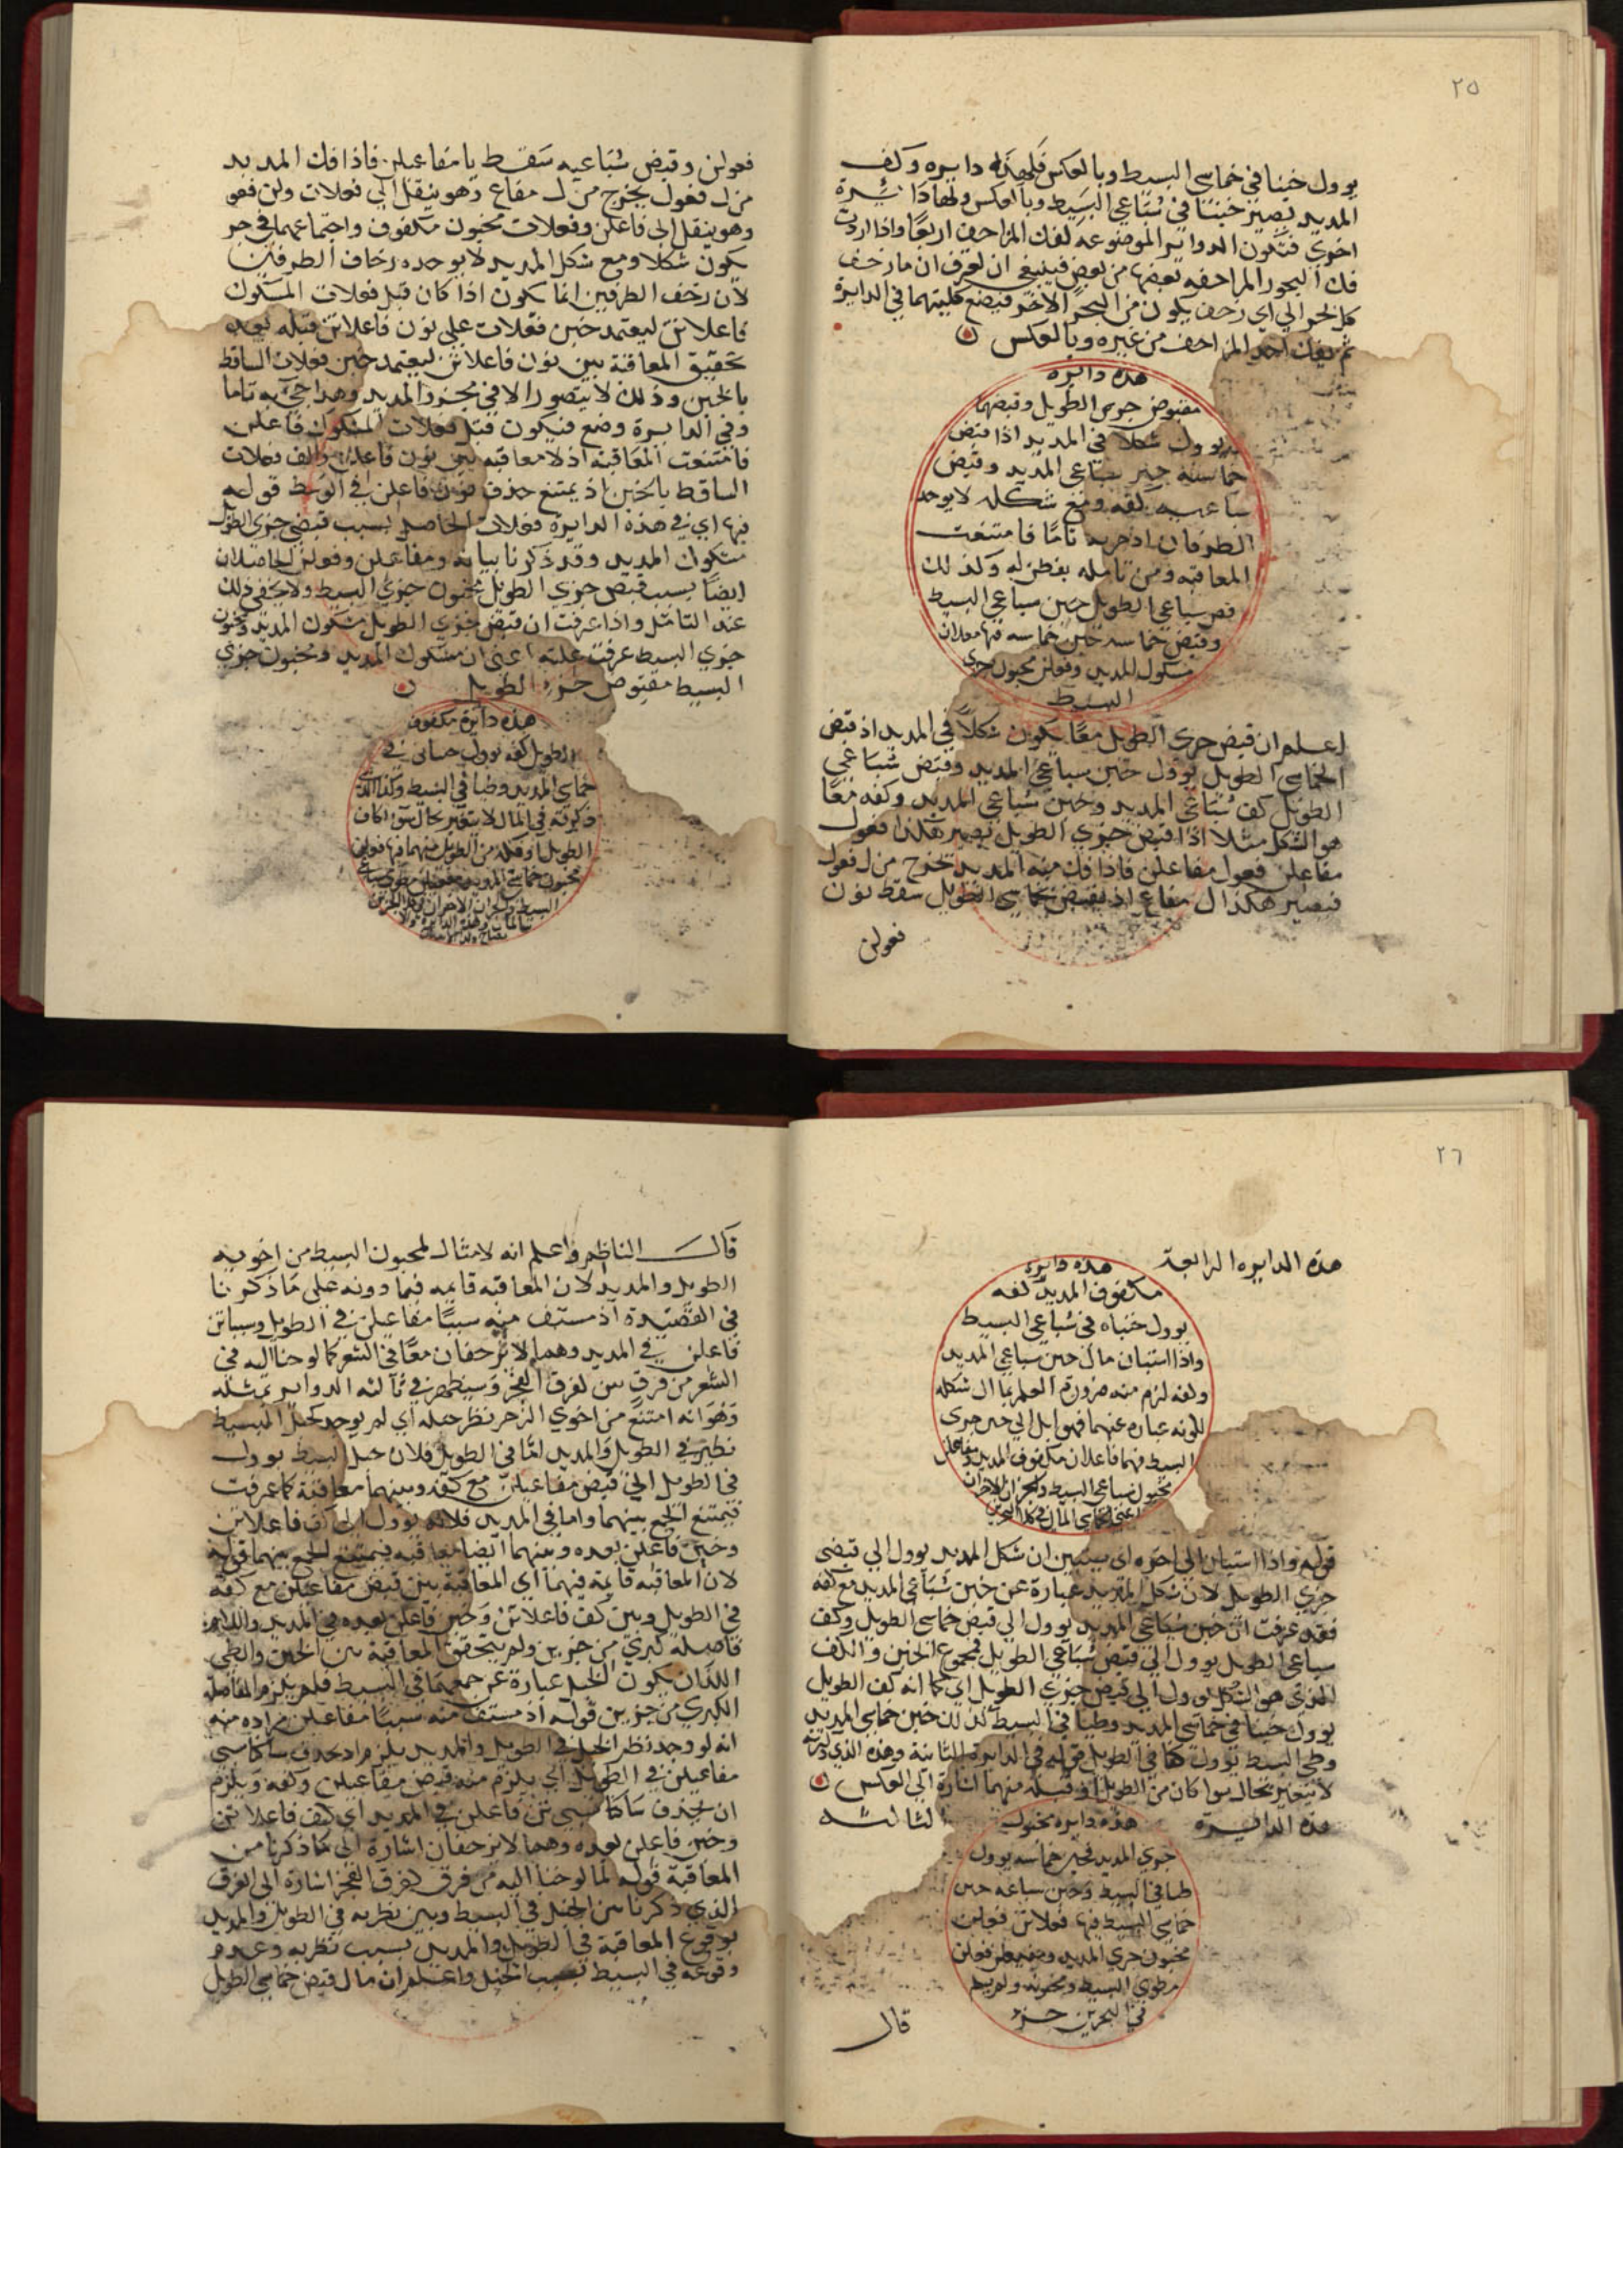 ٢٥
يوول خبنا في خماسي البسيط وبالعكس فلهذه دايره وكف
المديد يصير خبنا في سباعي البسيط وبالعكس ولهاذا
اخري فتكون الدواير الموضوعة لفك المزاحف اربعا واذا اردت
فك البحور المزاحفه بعضها من بعض فينبغي ان تعرف ان مازحف
كل بحر الي اي زحف يكون من البحر الاخر فيضع كليتهما في الدايرة
ثم يفك احد المزاحف من غيره وبالعكس
هذه دايره
مقبوض جزي الطويل وقبضهما
يوول شكلا في المديد اذا قبض
خماسيه خبن سباعي المديد وقبض
سباعيه كفه ومع شكله لا يوجد
الطرفان اذ جزيه تاما فامتنعت
المعاقبه ومن تامله يفطن له وكذلك
قبض سباعي الطويل خبن سباعي البسيط
وقبض خماسيه خبن خماسيه فيها فعلات
مشكول المديد وفعولن مخبون جزي
البسيط
اعلم ان قبض جزي الطويل معا يكون شكلا في المديد اذ قبض
الخماسي الطويل يوول خبن سباعي المديد وقبض سباعي
الطويل كف سباعي المديد وخبن سباعي المديد وكفه معا
هو الشكل مثلا اذا قبض جزي الطويل يصير هكذا فعول
مفاعلن فعول مفاعلن فاذا فك منه المديد يخرج من ل فعول
فيصير هكذا ل مفاع اذ بقبض خماسي الطويل سقط نون
فعولن
فعولن وقبض سباعيه سقط يا مفاعيلن فاذا فك المديد
من ل فعول يخرج من ل مفاع وهو ينقل الي فعلات ولن فعو
وهو ينقل الي فاعلن وفعلات مخبون مكفوف واجتماعهما في جز
يكون شكلا ومع شكل المديد لا يوجد زحاف الطرفين
لان زحف الطرفين انما يكون اذا كان قبل فعلات المشكول
فاعلاتن ليعتمد خبن فعلات علي نون فاعلاتن قبله بعد
تحقيق المعاقبة بين نون فاعلاتن ليعتمد خبن فعلات الساقط
بالخبن وذلك لا يتصور الا في مجزو المديد وهذا جزيه تاما
وفي الدايرة وضع فيكون قبل فعلات المشكول فاعلن
فامتنعت المعاقبة اذ لا معاقبه بين نون فاعلن والف فعلات
الساقط بالخبن اذ يمتنع حذف نون فاعلن في الوسط قوله
فيها اي في هذه الدايرة فعلات الحاصل بسبب قبض جزي الطويل
مشكول المديد وقد ذكرنا بيانه ومفاعلن وفعولن الحاصلان
ايضا بسبب قبض جزي الطويل مخبون جزي البسيط ولا يخفي ذلك
عند التامل واذا عرفت ان قبض جزي الطويل مشكول المديد ومخبون
جزي البسيط عرفت علته اعني ان مشكول المديد ومخبون جزي
البسيط مقبوض جزء الطويل
هذه دايرة مكفوف
الطويل كفه يوول خبنا في
خماسي المديد وطيا في البسيط وكذا الذي
ذكرته في المال لا يتغير بحال سوا كان
الطويل او فكه من الطويل منهما فيها فعولن
مخبون خماسي المديد
البسيط والجزان الاخران
٢٦
هذه الدايره الرابعة
هذه دايره
مكفوف المديد كفه
يوول خبناه في سباعي البسيط
واذا استبان مال خبن سباعي المديد
وكفه لزم منه ضرورة العلم بمال شكله
لكونه عباره عنهما فهو ايل الي خبن جزي
البسيط فيها فاعلات مكفوف المديد ومفاعلن
مخبون سباعي البسيط والجزان الاخران
اعني خماسي المال في كلا البحرين
قوله واذا استبان الي اخره اي يتبين ان شكل المديد يوول الي قبض
جزي الطويل لان شكل المديد عبارة عن خبن سباعي المديد مع كفه
فقد عرفت ان خبن سباعي المديد يوول الي قبض خماسي الطويل وكف
سباعي الطويل يوول الي قبض سباعي الطويل فمجموع الخبن والكف
الذي هو الشكل يوول الي قبض جزي الطويل اي كما انه كف الطويل
يوول خبنا في خماسي المديد وطيا في البسيط كذلك خبن خماسي المديد
وطي البسيط يوول كفا في الطويل قوله في الدايرة الثانية وهذه الذي ذكرته
لا يتغير بحال سوا كان من الطويل او فكه منهما اشارة الي العكس
هذه الدايرة
الثالثه
هذه دايره مخبون
جزي المديد فخبن خماسيه يوول
طيا في البسيط وخبن سباعيه خبن
خماسي البسيط فيها فعلاتن فعلن
مخبون جزي المديد
مطوي البسيط ومخبونه ولم يسلم
في البحرين جزء
قال
قال الناظم واعلم انه لا مثال لمخبون البسيط من اخويه
الطويل والمديد لان المعاقبه قايمه فيما دونه علي ما ذكرنا
في القصيدة اذ مستف منه سببا مفاعيلن في الطويل وسبباتن
فاعلن في المديد وهما لا تزحفان معا في الشعر كما لوحنا اليه في
الشعر من فرق كفرق الفجر وسيظهر في ثالثه الدواير تمثله
وهو انه امتنع من اخوي الزحر نظر خبله اي لم يوجد لخبل البسيط
نظير في الطويل والمديد اما في الطويل فلان خبل البسيط يوول
في الطويل الي قبض مفاعيلن مع كفه وبينهما معاقبة كما عرفت
فيمتنع الجمع بينهما واما في المديد فلانه يوول الي كف فاعلاتن
وخبن فاعلن بعده وبينهما ايضا معاقبه فيمتنع الجمع بينهما قوله
لان المعاقبه قايمة فيهما اي المعاقبة بين قبض مفاعيلن مع كفه
في الطويل وبين كف فاعلاتن وخبن فاعلن بعده في المديد
فاصله كبري من جزين ولم يتحقق المعاقبة بين الخبن والطي
اللذان يكون الخبل عبارة عن جمعهما في البسيط فلم يلزم الفاصلة
الكبري من جزين قوله اذ مستف منه سببا مفاعيلن مراده منه
انه لو وجد نظر الخبل في الطويل والمديد يلزم ان يحذف ساكنا سببي
مفاعيلن في الطويل اي يلزم منه قبض مفاعيلن وكفه ويلزم
ان يحذف ساكنا سببي تن فاعلن في المديد اي كف فاعلاتن
وخبن فاعلن بعده وهما لا تزحفان اشارة الي ما ذكرنا من
المعاقبة قوله لما لوحنا اليه من فرق كفرق الفجر اشارة الي الفرق
الذي ذكرنا بين الخبل في البسيط وبين نظريه في الطويل والمديد
بوقوع المعاقبة في الطويل والمديد بسبب نظريه وعدم
وقوعه في البسيط بسبب الخبل واعلم ان مال قبض خماسي الطويل